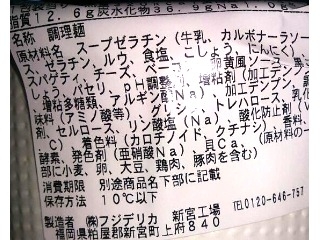 脂質12.6g炭水化物36.9gNa1.0g
名称 調理麺
原材料名 スープゼラチン(牛乳、カルボナーラソー
ゼラチン、ルウ、食塩、こしょう、にんにく)
スパゲティ、チーズ、ベーコン、卵黄風ソース、
しょう、パセリ、pH調整剤、加工デンプン、
増粘多糖類、アルギン
味料(アミノ酸等)、グリシン、トレハロース、乳化
剤、セルロース、リン酸塩(Na)、酸化防止剤(V.
C)、着色料(カロチノイド、クチナシ)、香料、
酵素、発色剤(亜硝酸Na)、貝Ca、(原材料の一
部に小麦、卵、大豆、鶏肉、豚肉を含む)
消費期限 別途商品名下部に記載
保存方法 10℃以下
製造者 ㈱フジデリカ 新宮工場
福岡県粕屋郡新宮町上府840
TEL0120-646-757